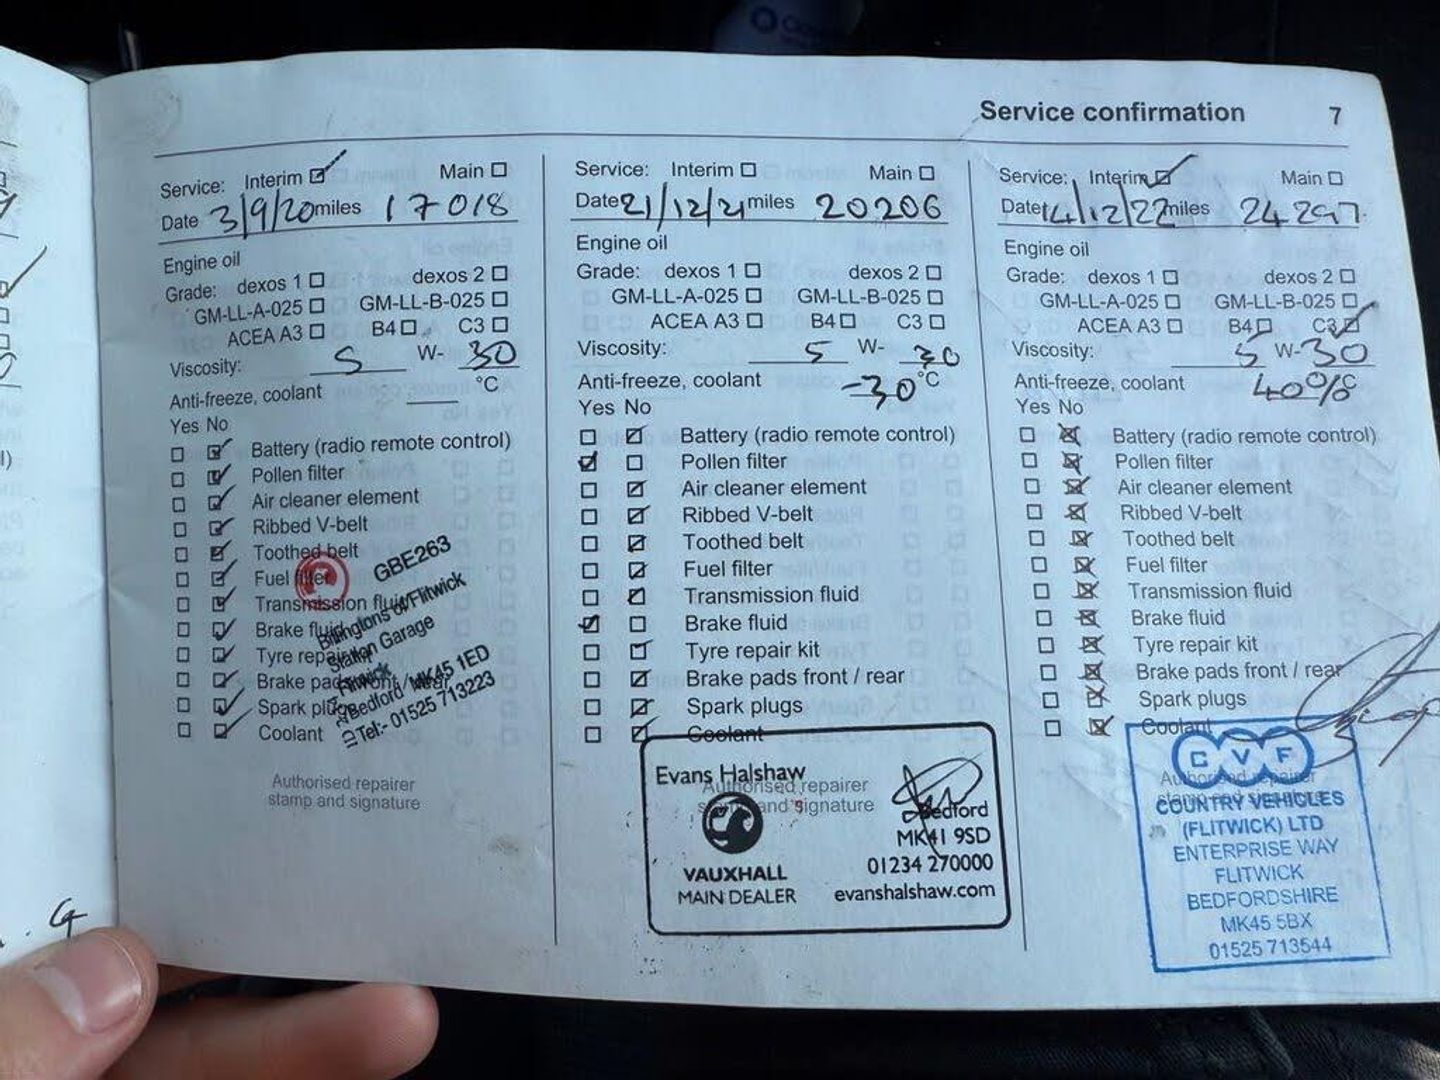 Service confirmation 7
Service: Interim Main
Date 3/9/20 miles 17018
Engine oil
Grade: dexos 1 dexos 2
GM-LL-A-025 GM-LL-B-025
ACEA A3 B4 C3
Viscosity: 5 W- 30
Anti-freeze, coolant °C
Yes No
Battery (radio remote control)
Pollen filter
Air cleaner element
Ribbed V-belt
Toothed belt
Fuel filter
Transmission fluid
Brake fluid
Tyre repair
Brake pads front / rear
Spark plugs
Coolant
GBE263
Billingtons of Flitwick
Station Garage
Flitwick
Bedford MK45 1ED
Tel:- 01525 713223
Authorised repairer
stamp and signature
Service: Interim Main
Date 21/12/21 miles 20206
Engine oil
Grade: dexos 1 dexos 2
GM-LL-A-025 GM-LL-B-025
ACEA A3 B4 C3
Viscosity: 5 W- 30
Anti-freeze, coolant -30°C
Yes No
Battery (radio remote control)
Pollen filter
Air cleaner element
Ribbed V-belt
Toothed belt
Fuel filter
Transmission fluid
Brake fluid
Tyre repair kit
Brake pads front / rear
Spark plugs
Coolant
Authorised repairer
stamp and signature
Evans Halshaw
VAUXHALL
MAIN DEALER
Bedford
MK41 9SD
01234 270000
evanshalshaw.com
Service: Interim Main
Date 14/12/22 miles 24297
Engine oil
Grade: dexos 1 dexos 2
GM-LL-A-025 GM-LL-B-025
ACEA A3 B4 C3
Viscosity: 5 W- 30
Anti-freeze, coolant 40°C
Yes No
Battery (radio remote control)
Pollen filter
Air cleaner element
Ribbed V-belt
Toothed belt
Fuel filter
Transmission fluid
Brake fluid
Tyre repair kit
Brake pads front / rear
Spark plugs
Coolant
Authorised repairer
stamp and signature
CVF
COUNTRY VEHICLES
(FLITWICK) LTD
ENTERPRISE WAY
FLITWICK
BEDFORDSHIRE
MK45 5BX
01525 713544